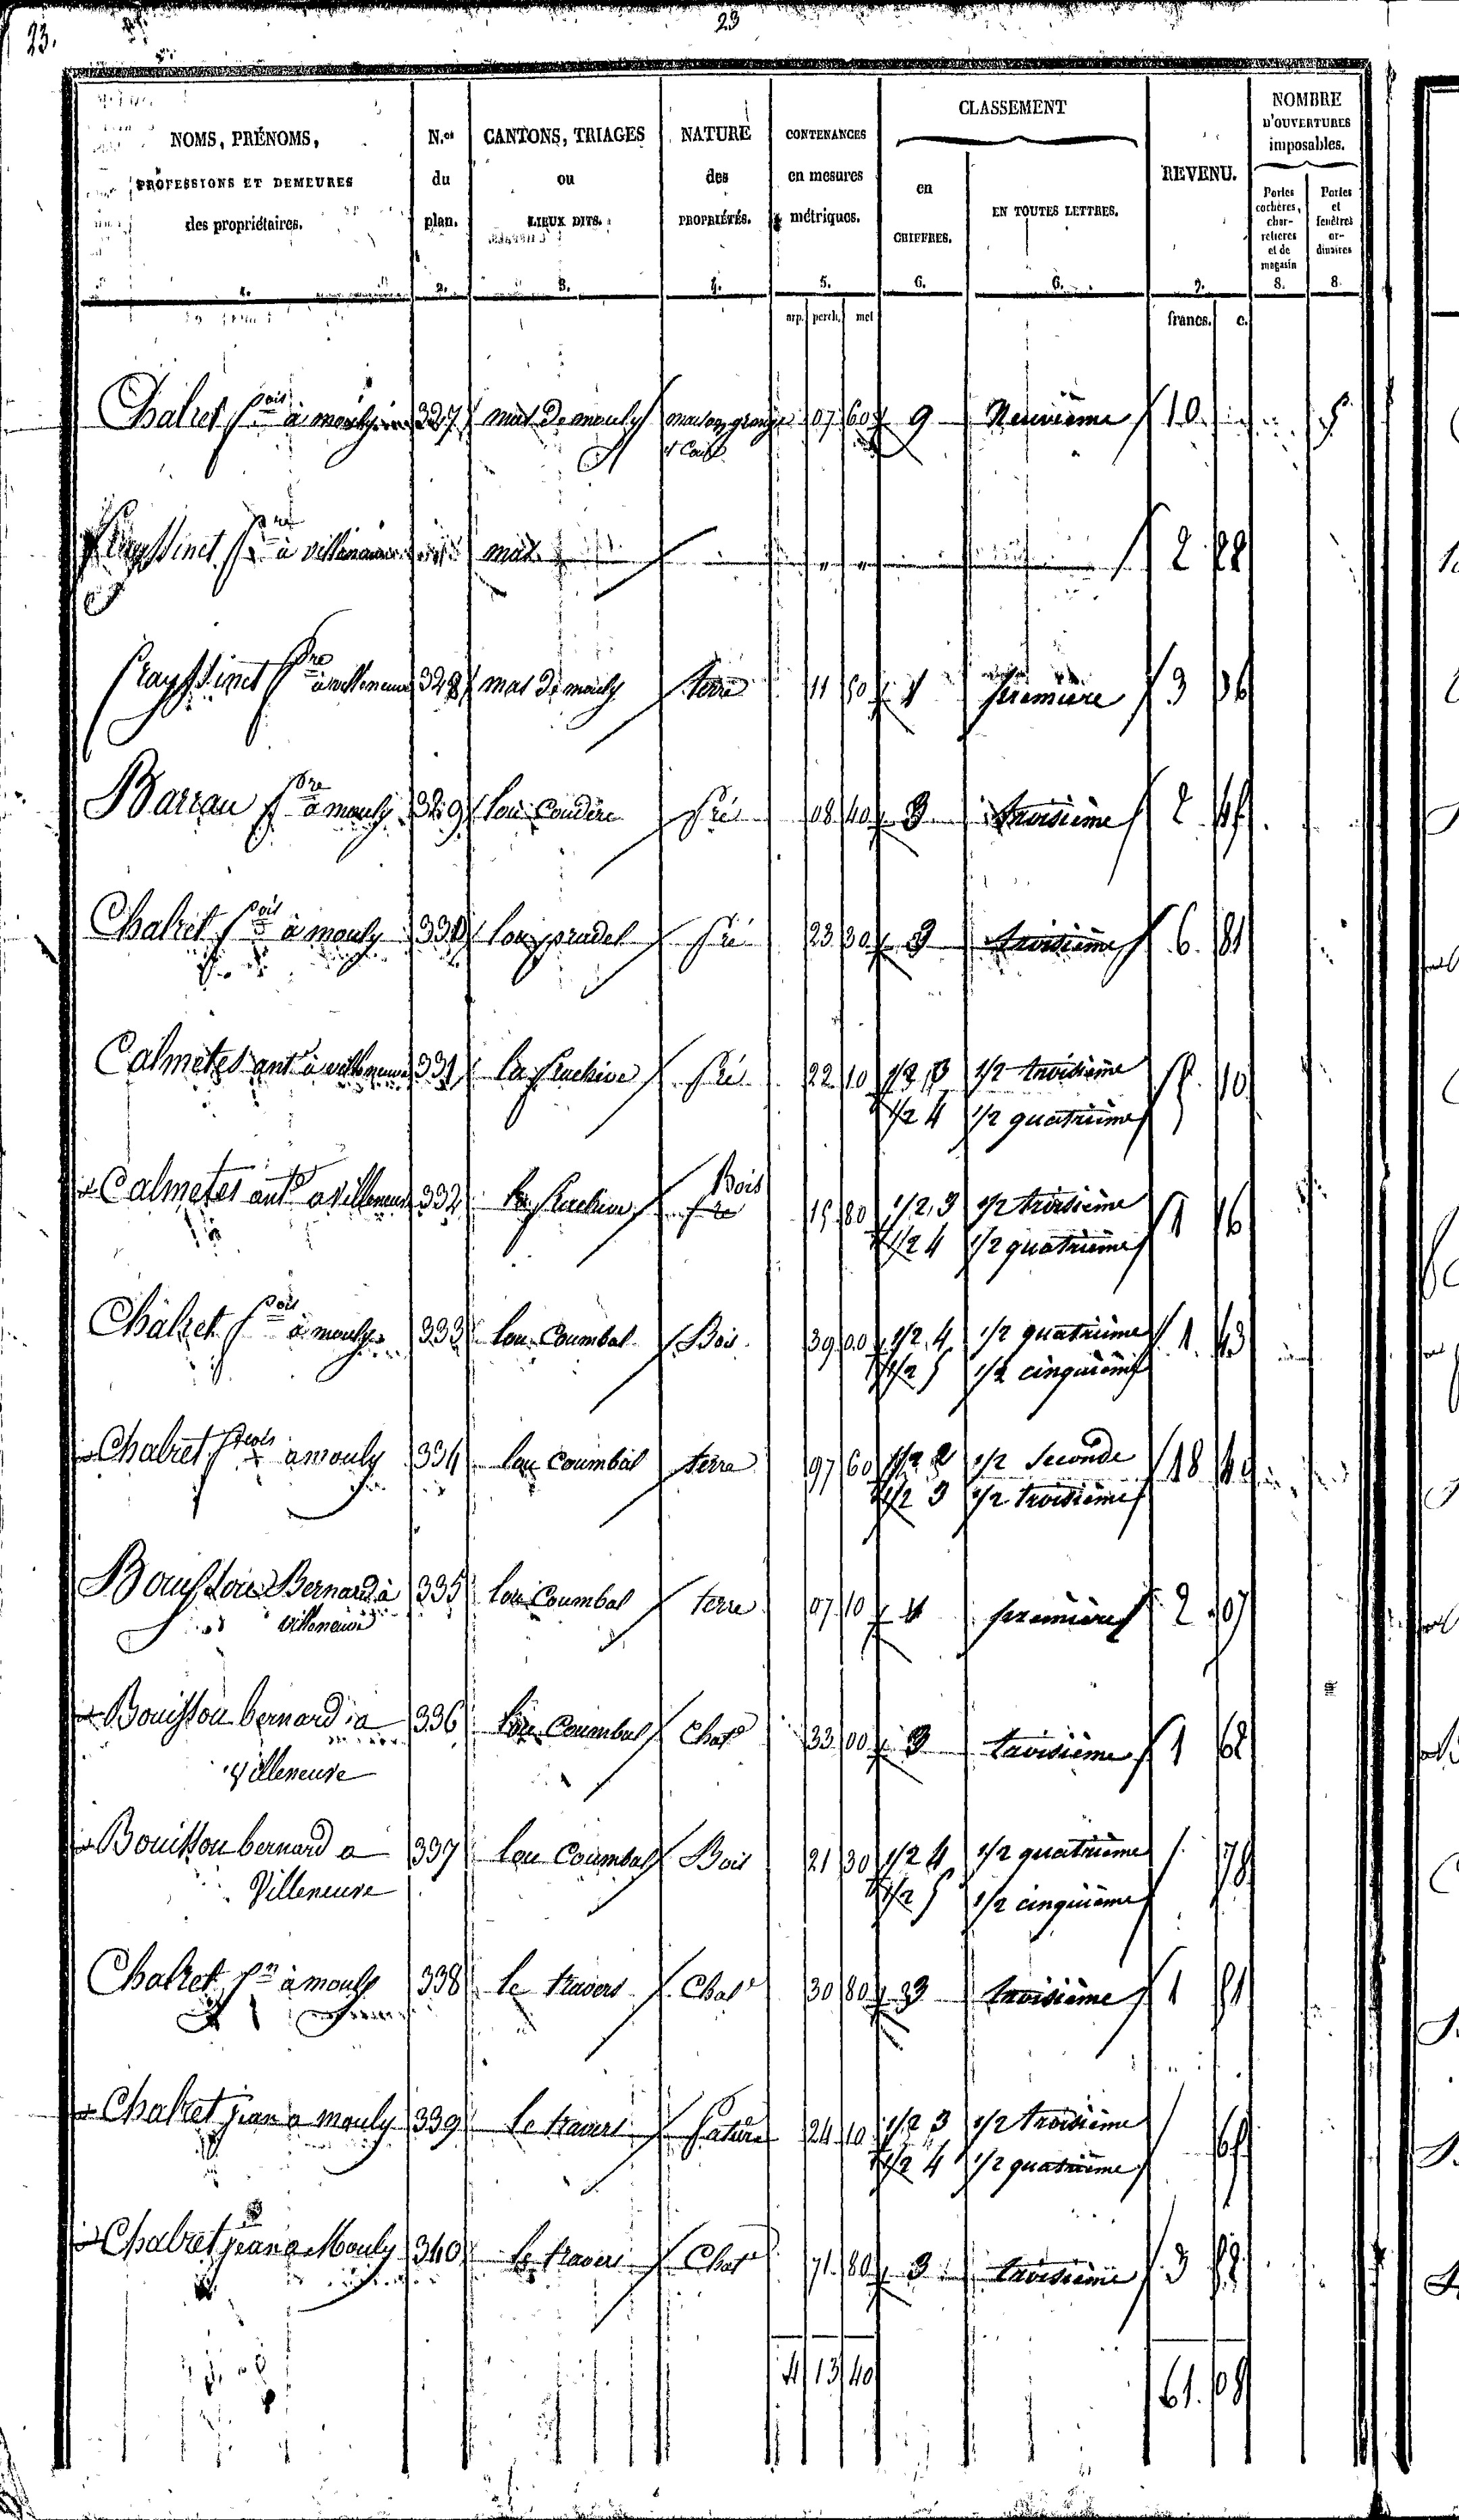 23.
23
NOMS, PRÉNOMS,
PROFESSIONS ET DEMEURES
des propriétaires.
1.
N.os
du
plan.
2.
CANTONS, TRIAGES
ou
LIEUX DITS.
3.
NATURE
des
PROPRIÉTÉS.
4.
CONTENANCES
en mesures
métriques.
5.
CLASSEMENT
en
CHIFFRES.
6.
EN TOUTES LETTRES.
6.
REVENU.
7.
NOMBRE
D'OUVERTURES
imposables.
Portes cochères, char- retières et de magasin
8.
Portes et fenêtres or- dinaires
8.
arp. perch. met francs. c.
Chalret fois à mouly 327 mas de mouly maison grange 07 60 9 Neuvième 10
et Cour
Frayssinet à villeneuve mas 2
Frayssinet pre à villeneuve 328 mas de mouly terre 11 50 1 première 3 36
Barrau pre à mouly 329 lou Coudere Pré 08 40 3 troisième 2 45
Chalret fois à mouly 330 lou pradel Pré 23 30 3 troisième 6 81
Calmetes ant à villeneuve 331 Pré 22 10 1/2 3 1/2 troisième 10
1/2 4 1/2 quatrième
Calmetes ant a villeneuve 332 Bois 15 80 1/2 3 1/2 troisième 1 16
1/2 4 1/2 quatrième
Chalret fois à mouly 333 lou Coumbal Bois 39 00 1/2 4 1/2 quatrième 1 43
1/2 5 1/2 cinquième
Chalret a mouly 334 lou Coumbal terre 97 60 1/2 2 1/2 Seconde 18 49
1/2 3 1/2 troisième
Bouissou Bernard à 335 lou Coumbal terre 07 10 1 première 2 07
villeneuve
Bouissou bernard a 336 lou Coumbal Chat 33 00 3 troisième 1 62
Villeneuve
Bouissou bernard a 337 lou Coumbal Bois 21 30 1/2 4 1/2 quatrième 78
Villeneuve 1/2 5 1/2 cinquième
Chalret à mouly 338 le travers Chat 30 80 3 troisième 1 51
Chalret jean a mouly 339 le travers Pature 24 10 1/2 3 1/2 troisième 65
1/2 4 1/2 quatrième
Chalret jean a Mouly 340 le travers Chat 71 80 3 troisième 3 52
4 13 40 61 08